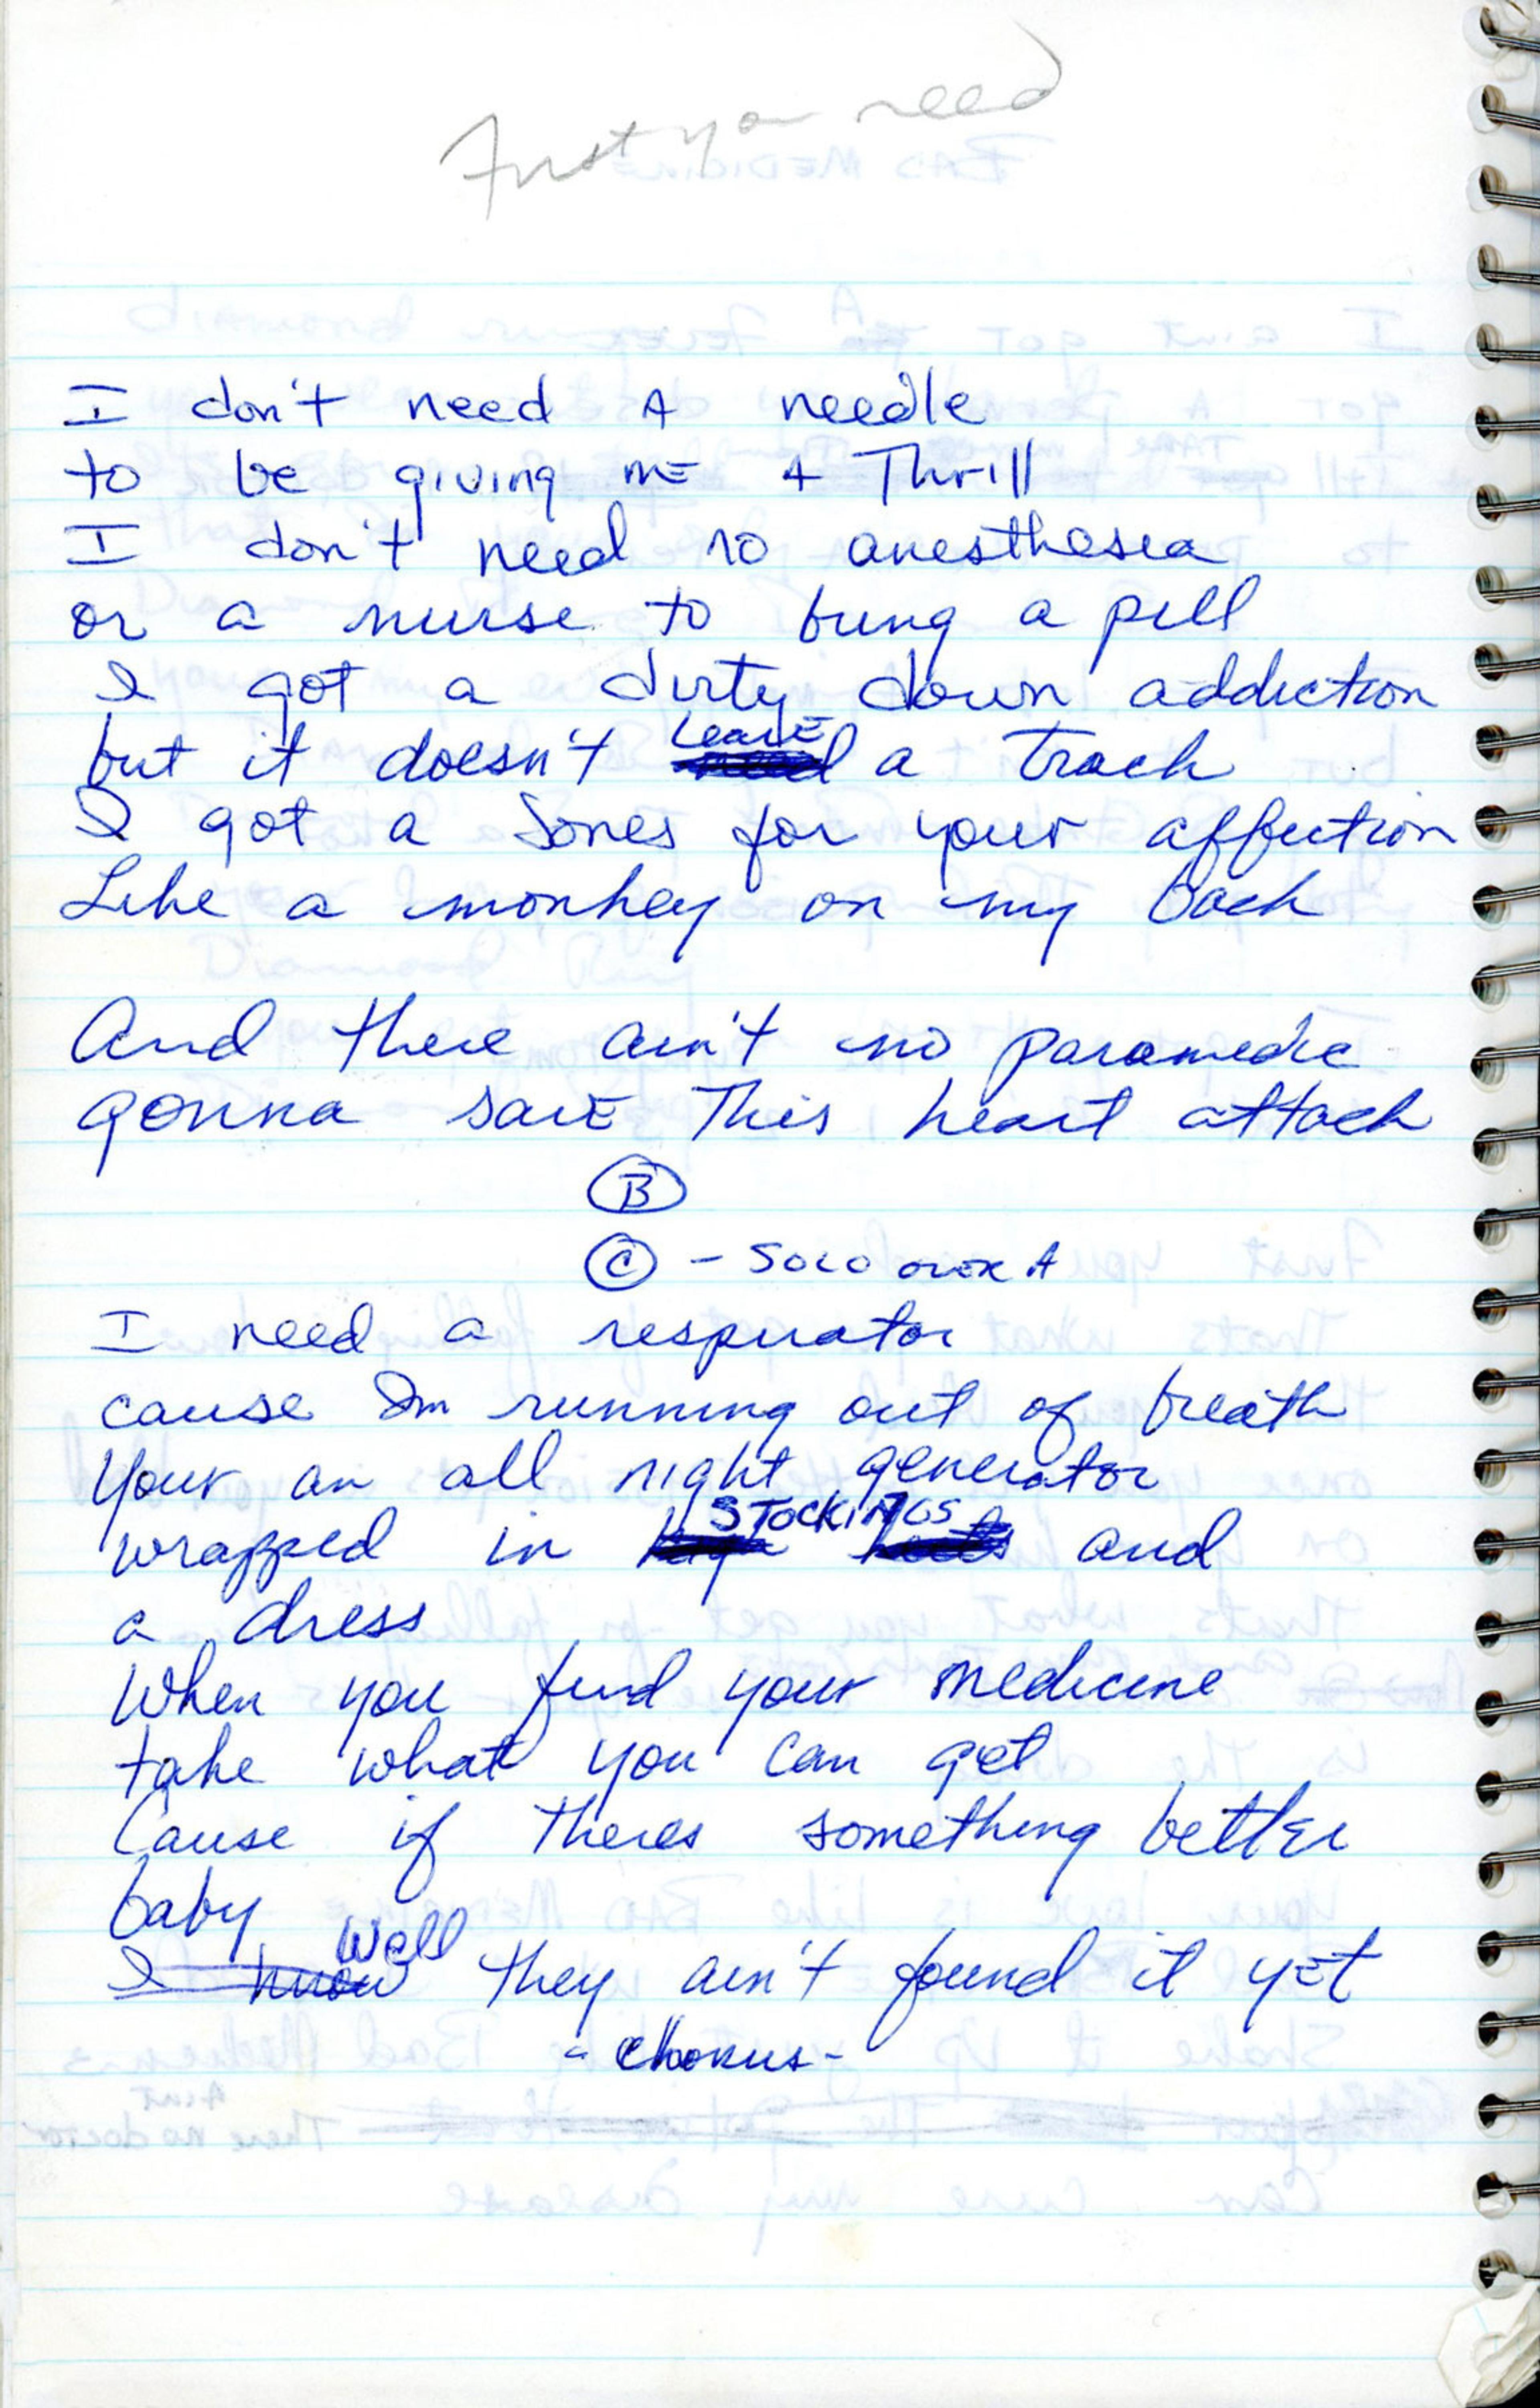 First you need
I don't need A needle
to be giving mE A Thrill
I don't need no anesthesea
or a nurse to bring a pill
I got a dirty down addiction
but it doesn't LeavE a track
I got a Jones for your affection
Like a monkey on my back
And there ain't no paramedic
gonna savE This heart attack
B
C - SOLO over A
I need a respirator
cause Im running out of breath
Your an all night generator
wrapped in STOCKINGS and
a dress
When you find your medicine
take what you can get
Cause if theres something better
baby
I know Well they ain't found it yEt
- chorus -